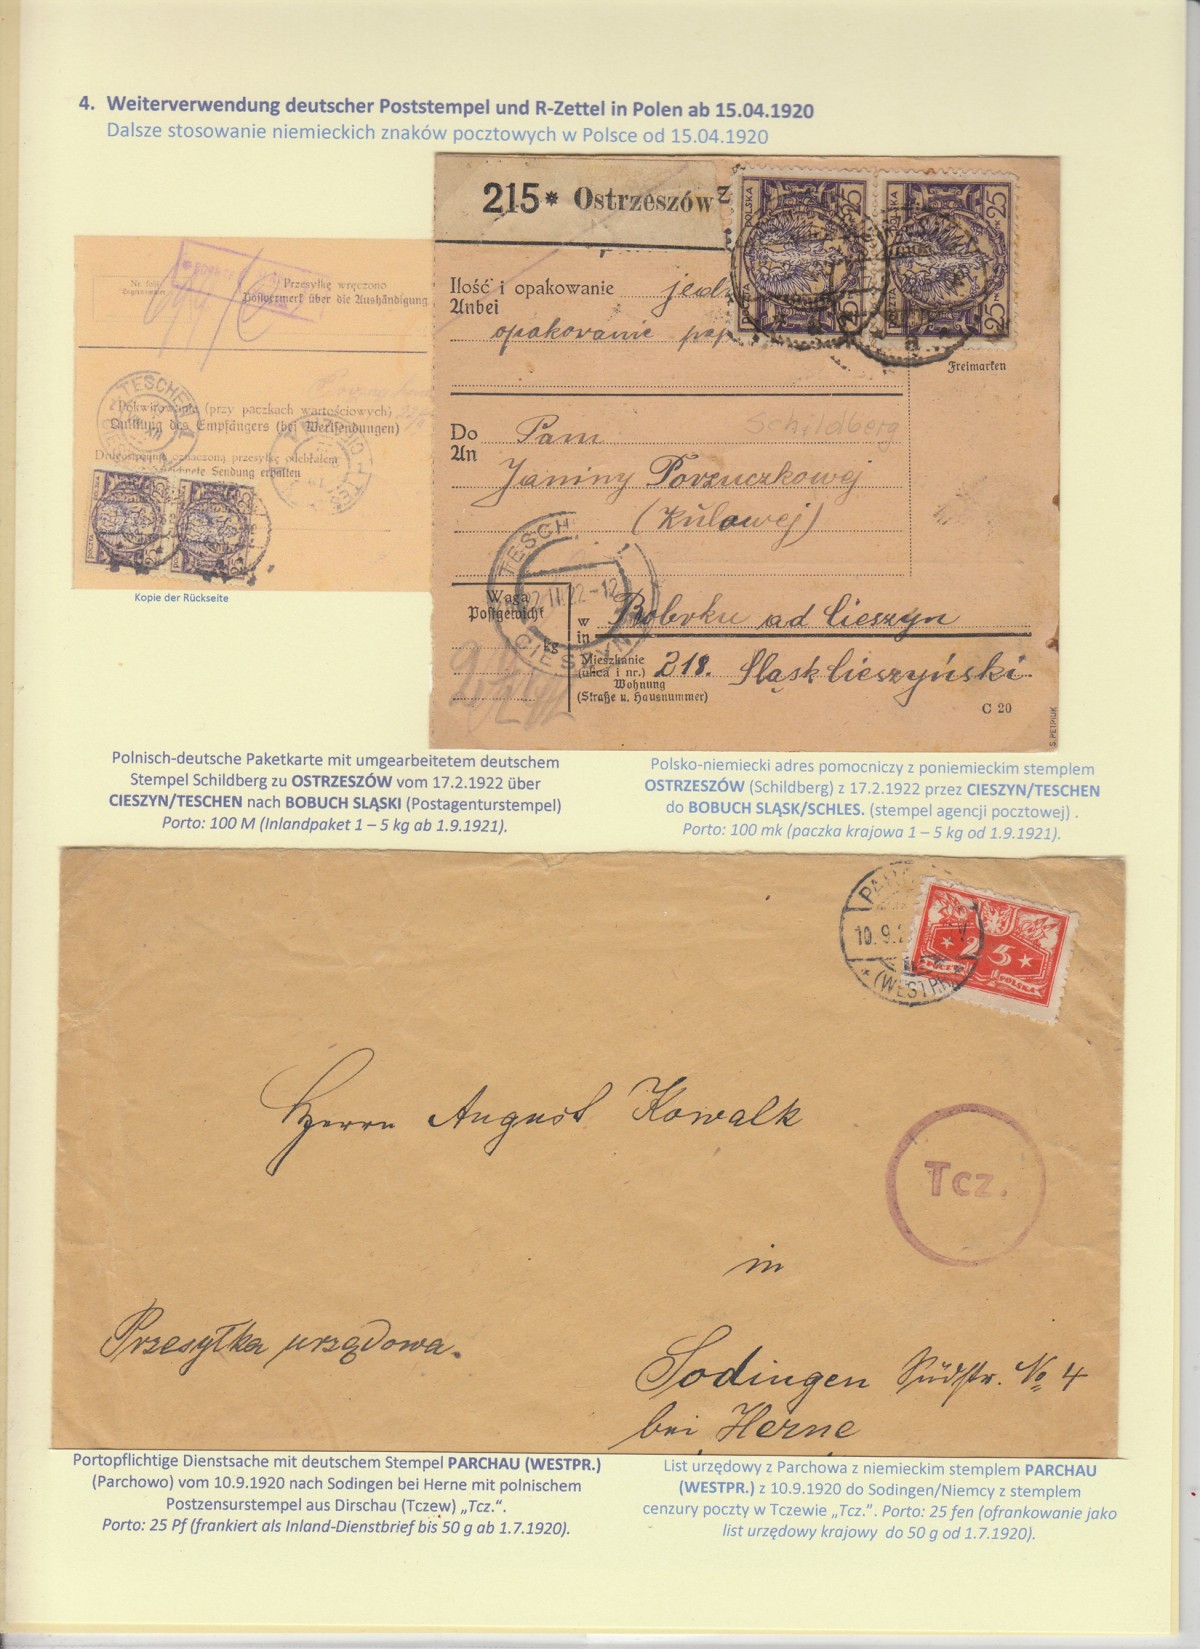 4. Weiterverwendung deutscher Poststempel und R-Zettel in Polen ab 15.04.1920
Dalsze stosowanie niemieckich znaków pocztowych w Polsce od 15.04.1920
215* Ostrzeszów
POCZTA POLSKA 25 25
POCZTA 25 25
Ilość i opakowanie
Anbei
opakovanie
Freimarken
Schildberg
Do
An
Pani
Janiny Porzuczkowej
(Kulawej)
TESCH
22.II.22-12
CIESZYN
Waga
Postgewicht
kg
w
in
Bobrku ad Cieszyn
Mieszkanie
(ulica i nr.)
Wohnung
(Straße u. Hausnummer)
218. Śląsk Cieszyński
C 20
S. PETPIUK
Przesyłkę wręczono
Postvermerk über die Aushändigung
TESCHEN 1
Pokwitowanie (przy paczkach wartościowych)
Quittung des Empfängers (bei Wertsendungen)
oznaczoną przesyłkę odebrałem
Sendung erhalten
POCZTA POLSKA 25 25
Kopie der Rückseite
Polnisch-deutsche Paketkarte mit umgearbeitetem deutschem
Stempel Schildberg zu OSTRZESZÓW vom 17.2.1922 über
CIESZYN/TESCHEN nach BOBUCH SLĄSKI (Postagenturstempel)
Porto: 100 M (Inlandpaket 1 – 5 kg ab 1.9.1921).
Polsko-niemiecki adres pomocniczy z poniemieckim stemplem
OSTRZESZÓW (Schildberg) z 17.2.1922 przez CIESZYN/TESCHEN
do BOBUCH SLĄSK/SCHLES. (stempel agencji pocztowej) .
Porto: 100 mk (paczka krajowa 1 – 5 kg od 1.9.1921).
10.9.
(WESTPR.)
25
POCZTA POLSKA
Herrn August Kowalk
Tcz.
in
Przesyłka urzędowa.
Sodingen Südstr. No 4
bei Herne
Portopflichtige Dienstsache mit deutschem Stempel PARCHAU (WESTPR.)
(Parchowo) vom 10.9.1920 nach Sodingen bei Herne mit polnischem
Postzensurstempel aus Dirschau (Tczew) „Tcz.“.
Porto: 25 Pf (frankiert als Inland-Dienstbrief bis 50 g ab 1.7.1920).
List urzędowy z Parchowa z niemieckim stemplem PARCHAU
(WESTPR.) z 10.9.1920 do Sodingen/Niemcy z stemplem
cenzury poczty w Tczewie „Tcz.“. Porto: 25 fen (ofrankowanie jako
list urzędowy krajowy do 50 g od 1.7.1920).